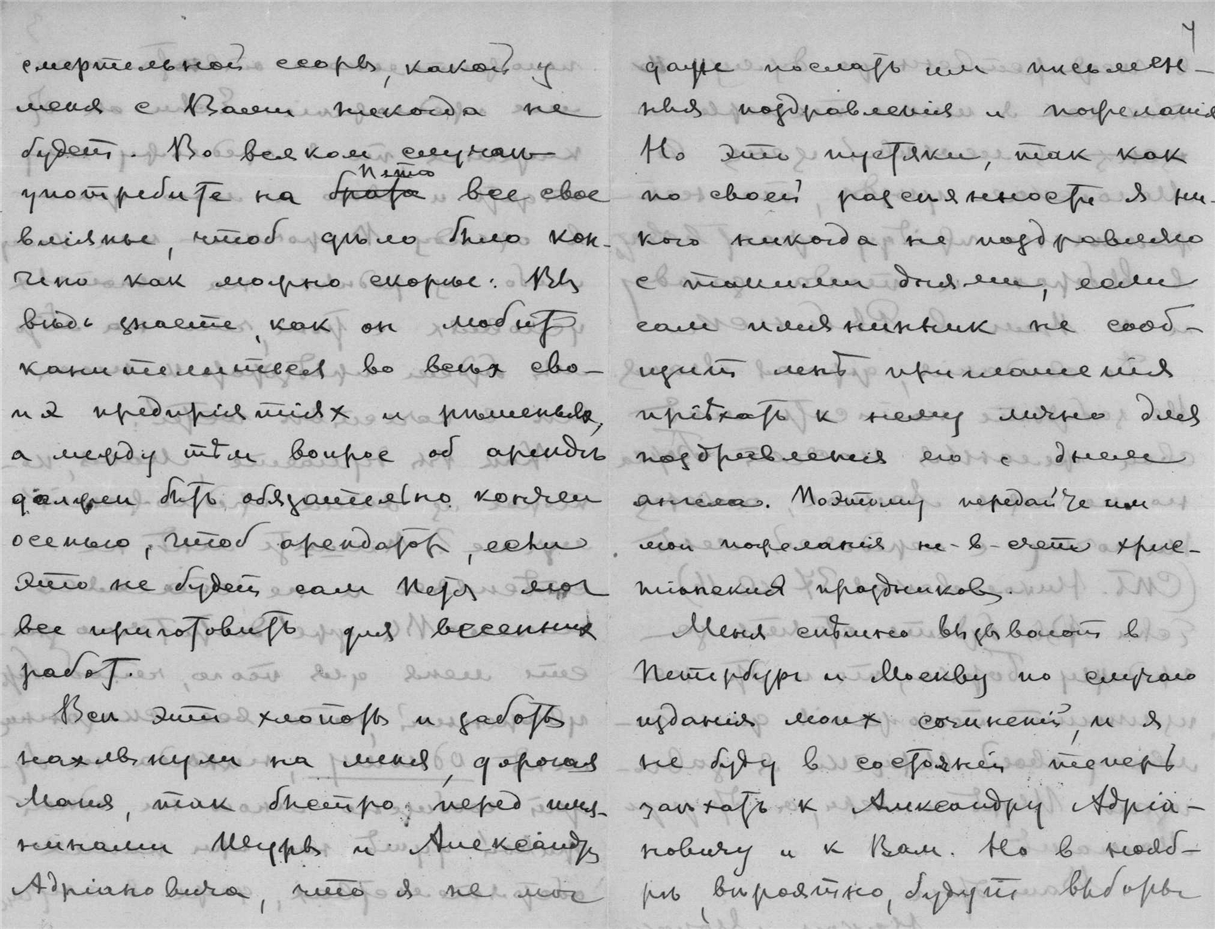 смертельной ссоры, какой у
меня с Вами никогда не
будет. Во всяком случаи
Петю
употребите на брата все свое
влiянье, чтоб дѣло было кон-
чено как можно скорѣе. Вы
вѣдь знаете, как он любит
канителиться во всѣх сво-
их предпрiятiях и рѣшеньях,
а между тѣм вопрос об арендѣ
должен быть обязательно кончен
осенью, чтоб арендатор, если
это не будет сам Петя мог
все приготовить для весенних
работ.
Всѣ эти хлопоты и заботы
нахлынули на меня, дорогая
Маня, так быстро перед имя-
нинами Шуры и Александр
Адрiановича, что я не мог
4
даже послать им письмен-
ныя поздравленiя и пожеланiя
Но это пустяки, так как
по своей разсѣянности я ни-
кого никогда не поздравляю
с такими днями, если
сам имянинник не сооб-
щит мнѣ приглашенiя
прiѣхать к нему лично для
поздравленiя его с днем
ангела. Поэтому передайте им
мои пожеланiя не-в-счет хрис-
тiанских праздников.
Меня спѣшно вызывают в
Петербург и Москву по случаю
изданiя моих сочиненiй, и я
не буду в состоянiи теперь
заѣхать к Александру Адрiа-
новичу и к Вам. Но в нояб-
рѣ, вѣроятно, будут выборы